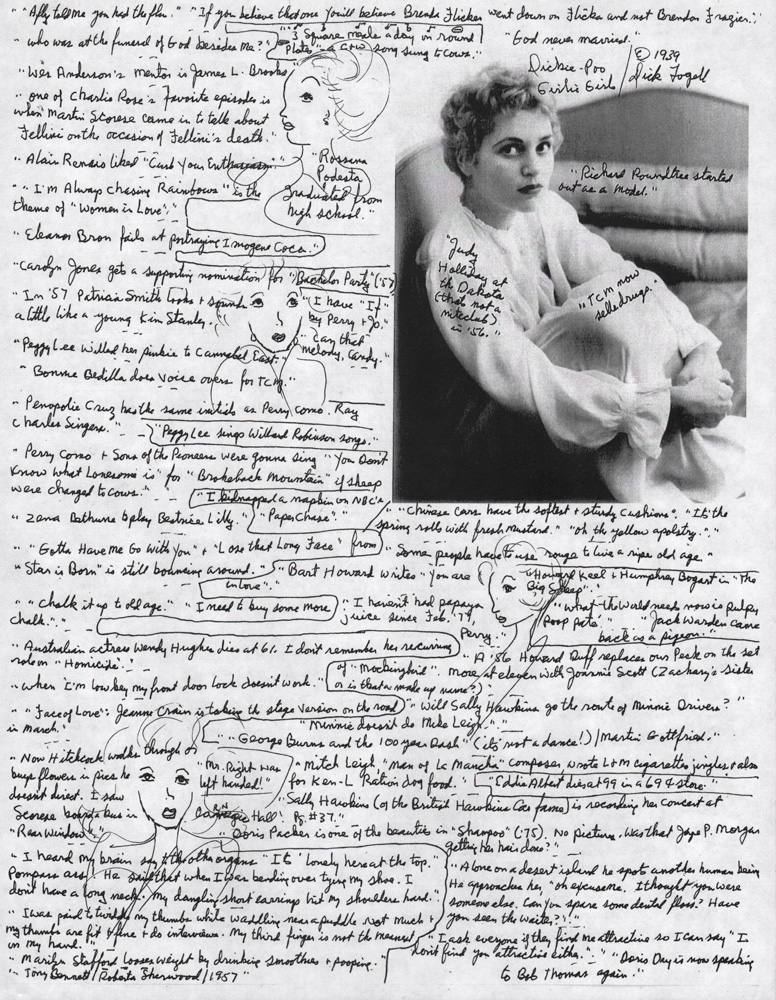 " "Ally told me you had the flu." "If you believe that one you'll believe Brenda Flicker went down on Flicka and not Brendan Frazier."
" who was at the funeral of God besides me?" "3 square meals a day on round
plates" - a C+W song sung to cows."
"God never married."
Dickie-Poo
Girlie Girls / © 1939
Dick Fogell
"Wes Anderson's mentor is James L. Brooks."
" one of Charlie Rose's favorite episodes is
when Martin Scorese came in to talk about
Fellini on the occasion of Fellini's death."
"Alain Renais liked "Curb Your Enthusiasm."
"Rossana
Podesta
graduated from
high school."
" "I'm Always Chasing Rainbows" is the
theme of "Women in Love"."
"Eleanor Bron fails at portraying Imogene Coca."
"Carolyn Jones gets a supporting nomination for "Bachelor Party" ('57)
"In '57 Patricia Smith looks + sounds
a little like a young Kim Stanley."
"I have "If"
by Perry + Jo."
"Can that
melody, Candy."
"Peggy Lee Willed her pinkie to Cannabel East."
"Bonnie Bedilla does voice overs for TCM."
"Richard Roundtree started
out as a model."
"Judy
Holliday at
the Dakota
(that's not a
niteclub)
in '56."
"TCM now
sells drugs."
"Penopolie Cruz has the same initials as Perry Como. Ray
Charles Singers."
"Peggy Lee sings Willard Robinson songs."
"Perry Como + Sons of the Pioneers were gonna sing "You Don't
Know What Lonesome is" for "Brokeback Mountain" if sheep
were changed to cows."
"I kidnapped a napkin on NBC's
"Paper Chase"."
"Zena Bethune to play Beatrice Lilly."
" "Chinese cars have the softest + sturdy cushions". "It's the
spring rolls with fresh mustard." "oh the yellow apolstry."."
" "Gotta Have Me Go With You" + "Lose that Long Face" from
"Star is Born" is still bouncing around."
"Some people have to use rouge to live a ripe old age."
"Bart Howard writes "You are
in love"."
"To Howard Keel + Humphrey Bogart in "The
Big Sleep"
" "Chalk it up to old age." "I need to buy some more
chalk."."
"I haven't had papaya
juice since Feb. '79,
Perry."
"what the world needs now is pulpy
poop pate."
"Jack Warden came
back as a pigeon."
"Australian actress Wendy Hughes dies at 61. I don't remember her recurring
role on "Homicide"."
"A '56 Howard Duff replaces our Peck on the set
of "Mockingbird". more at eleven with Joannie Scott (Zachary's sister
or is that a made up name?)
"when I'm low key my front door lock doesn't work."
" "Face of Love": Jeanne Crain is taking the stage version on the road
in March."
"Will Sally Hawkins go the route of Minnie Drivers?"
"Minnie doesn't do Mike Leigh."
"George Burns and the 100 year Dash" (it's not a dance!) / Martin Gottfried."
"Now Hitchcock walks through or
buys flowers in pics he
doesn't direct. I saw
Scorese board a bus in
"Rear Window"."
"Mr. Right was
left handed."
"Mitch Leigh, "Man of La Mancha" composer, wrote L+M cigarette jingles + also
for Ken-L Ration dog food."
"Eddie Albert dies at 99 in a 69¢ store."
"Sally Hawkins (of the British Hawkins Coe fame) is recording her concert at
Carnegie Hall! Pg. #37."
"Doris Packer is one of the beauties in "Shampoo" ('75). No picture. Was that Jaye P. Morgan
getting her hair done?"
"I heard my brain say to the other organs "It's lonely here at the top."
Pompass ass! He said that when I was bending over tying my shoe. I
don't have a long neck. My dangling short earrings hit my shoulders hard."
"Alone on a desert island he spots another human being
He approaches her, "oh excuse me. I thought you were
someone else. Can you spare some dental floss? Have
you seen the waiter?"."
"I was paid to twiddle my thumbs while waddling near a puddle not much +
my thumbs are fit + fine + do interviews. My third finger is not the meanest
on my hand."
"I ask everyone if they find me attractive so I can say "I
don't find you attractive either."
"Marilyn Stafford looses weight by drinking smoothies + pooping."
"Doris Day is now speaking
to Bob Thomas again."
"Tony Bennett / Roberta Sherwood / 1957"